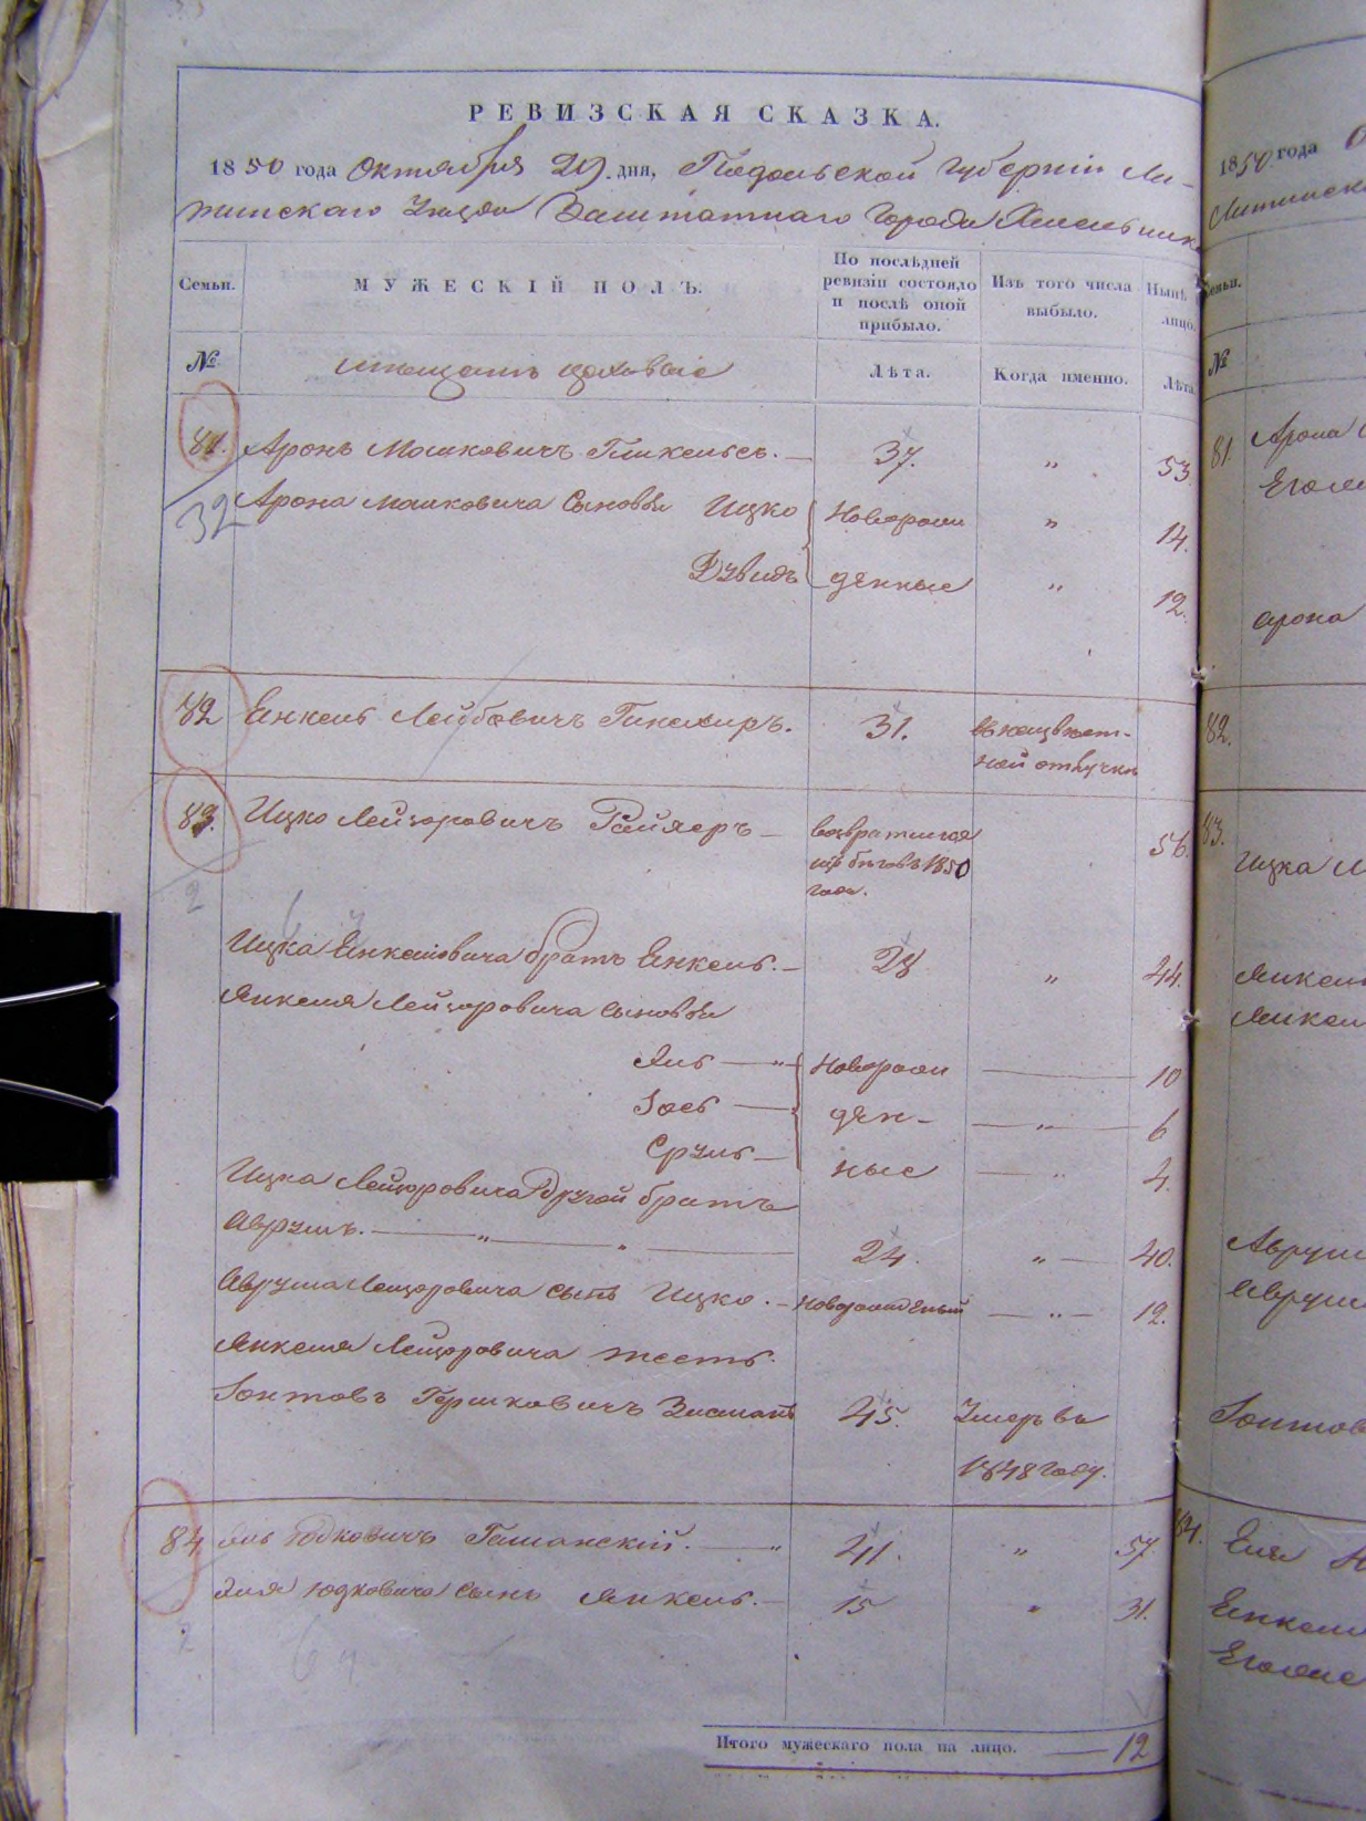 РЕВИЗСКАЯ СКАЗКА.
1850 года Октября 29 дня, Подольской Губерніи Ли-
тинскаго Уезда Заштатнаго Города Хмельника
Семьи. МУЖЕСКІЙ ПОЛЪ. По послѣдней ревизіи состояло и послѣ оной прибыло. Изъ того числа выбыло. Нынѣ на лицо.
№ мещане цеховые Лѣта. Когда именно. Лѣта
81. Аронъ Мошковичъ — 37. „ 53.
32 Арона Мошковича Сыновья Ицко Новорож „ 14.
Дувидъ денные „ 12.
82 Енкель Лейбовичъ 31. въ
ной отлучке
83. Ицко Лейзоровичъ — возвратился 56.
изъ бегов в 1850
года.
2
Ицка Енкелевича братъ Енкель. — 28 „ 44.
Янкеля Лейзоровича Сыновья
Яль — „ Новорож — 10
Іось — ден- — „ — 6
Сруль — ные — „ 4.
Ицка Лейзоровича Другой братъ
Аврумъ. — „ — „ — 24. „ — 40.
Аврума Лейзоровича Сынъ Ицко. — новорожденный — „ — 12.
Янкеля Лейзоровича тесть.
Гершковичъ 45. Умеръ въ
1848 году.
84 Юдковичъ — „ 41. „ 57.
Юдковича Сынъ Янкель. — 15 „ 31.
2
Итого мужескаго пола на лицо. — 12
1850 года
Литинска
Семьи.
№
81. Арона
Арона
82.
83.
Ицка
Янкел
Янкел
Авруm
Аврум
84. Еля
Енкел